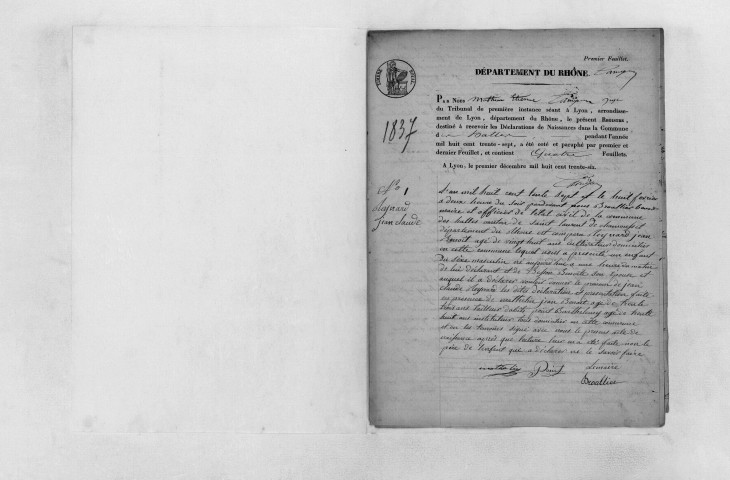 Premier Feuillet.
DÉPARTEMENT DU RHÔNE
1837
PAR NOUS juge
du Tribunal de première instance séant à Lyon, arrondisse-
ment de Lyon, département du Rhône, le présent REGISTRE,
destiné à recevoir les Déclarations de Naissances dans la Commune
d pendant l'année
mil huit cent trente-sept, a été coté et paraphé par premier et
dernier Feuillet, et contient Quatre Feuillets.
A Lyon, le premier décembre mil huit cent trente-six.
N° 1
jean claude
L'an mil huit cent trente sept et le huit fevrier
a deux heures du soir pardevant nous
maire et officier de l'etat civil de la commune
des halles canton de Saint laurent de chamousset
département du rhone est comparu jean
Benoit agé de vingt huit ans cultivateur domicilié
en cette commune lequel nous a presenté un enfant
du sexe masculin né aujourd'hui a une heure du matin
de lui déclarant et de son épouse et
auquel il a déclaré vouloir donner le prenom de jean
claude les dites déclaration et presentation faite
en presence de jean Benoit agé de trente
trois ans tailleur d'habits agé de trente
huit ans instituteur tous domiciliés en cette commune
et ont les temoins signé avec nous le present acte de
naissance après que lecture leur en a été faite non le
père de l'enfant qui a déclaré ne le savoir faire
Le maire